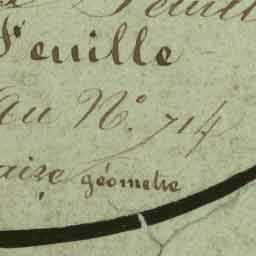 Feuille
au N° 714
géometre